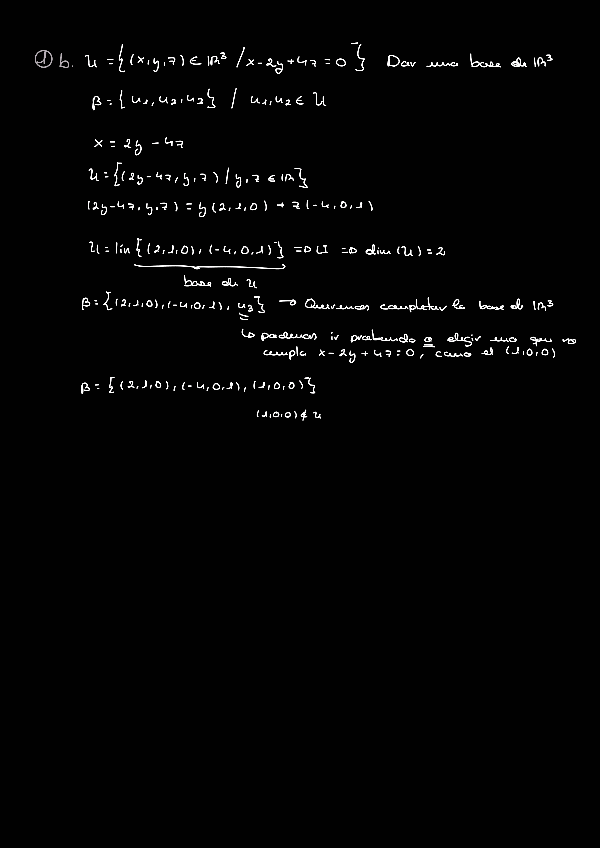 ① b. U = {(x,y,z) ∈ IR³ / x-2y+4z=0} Dar una base de IR³
β = {u₁,u₂,u₃} / u₁,u₂ ∈ U
x = 2y - 4z
U = {(2y-4z, y, z) / y,z ∈ IR}
(2y-4z, y, z) = y(2,1,0) + z(-4,0,1)
U = lin {(2,1,0), (-4,0,1)} => LI => dim(U) = 2
base de U
β = {(2,1,0), (-4,0,1), u₃} → Queremos completar la base de IR³
↳ podemos ir probando o elegir uno que no
cumpla x-2y+4z=0, como el (1,0,0)
β = {(2,1,0), (-4,0,1), (1,0,0)}
(1,0,0) ∉ U